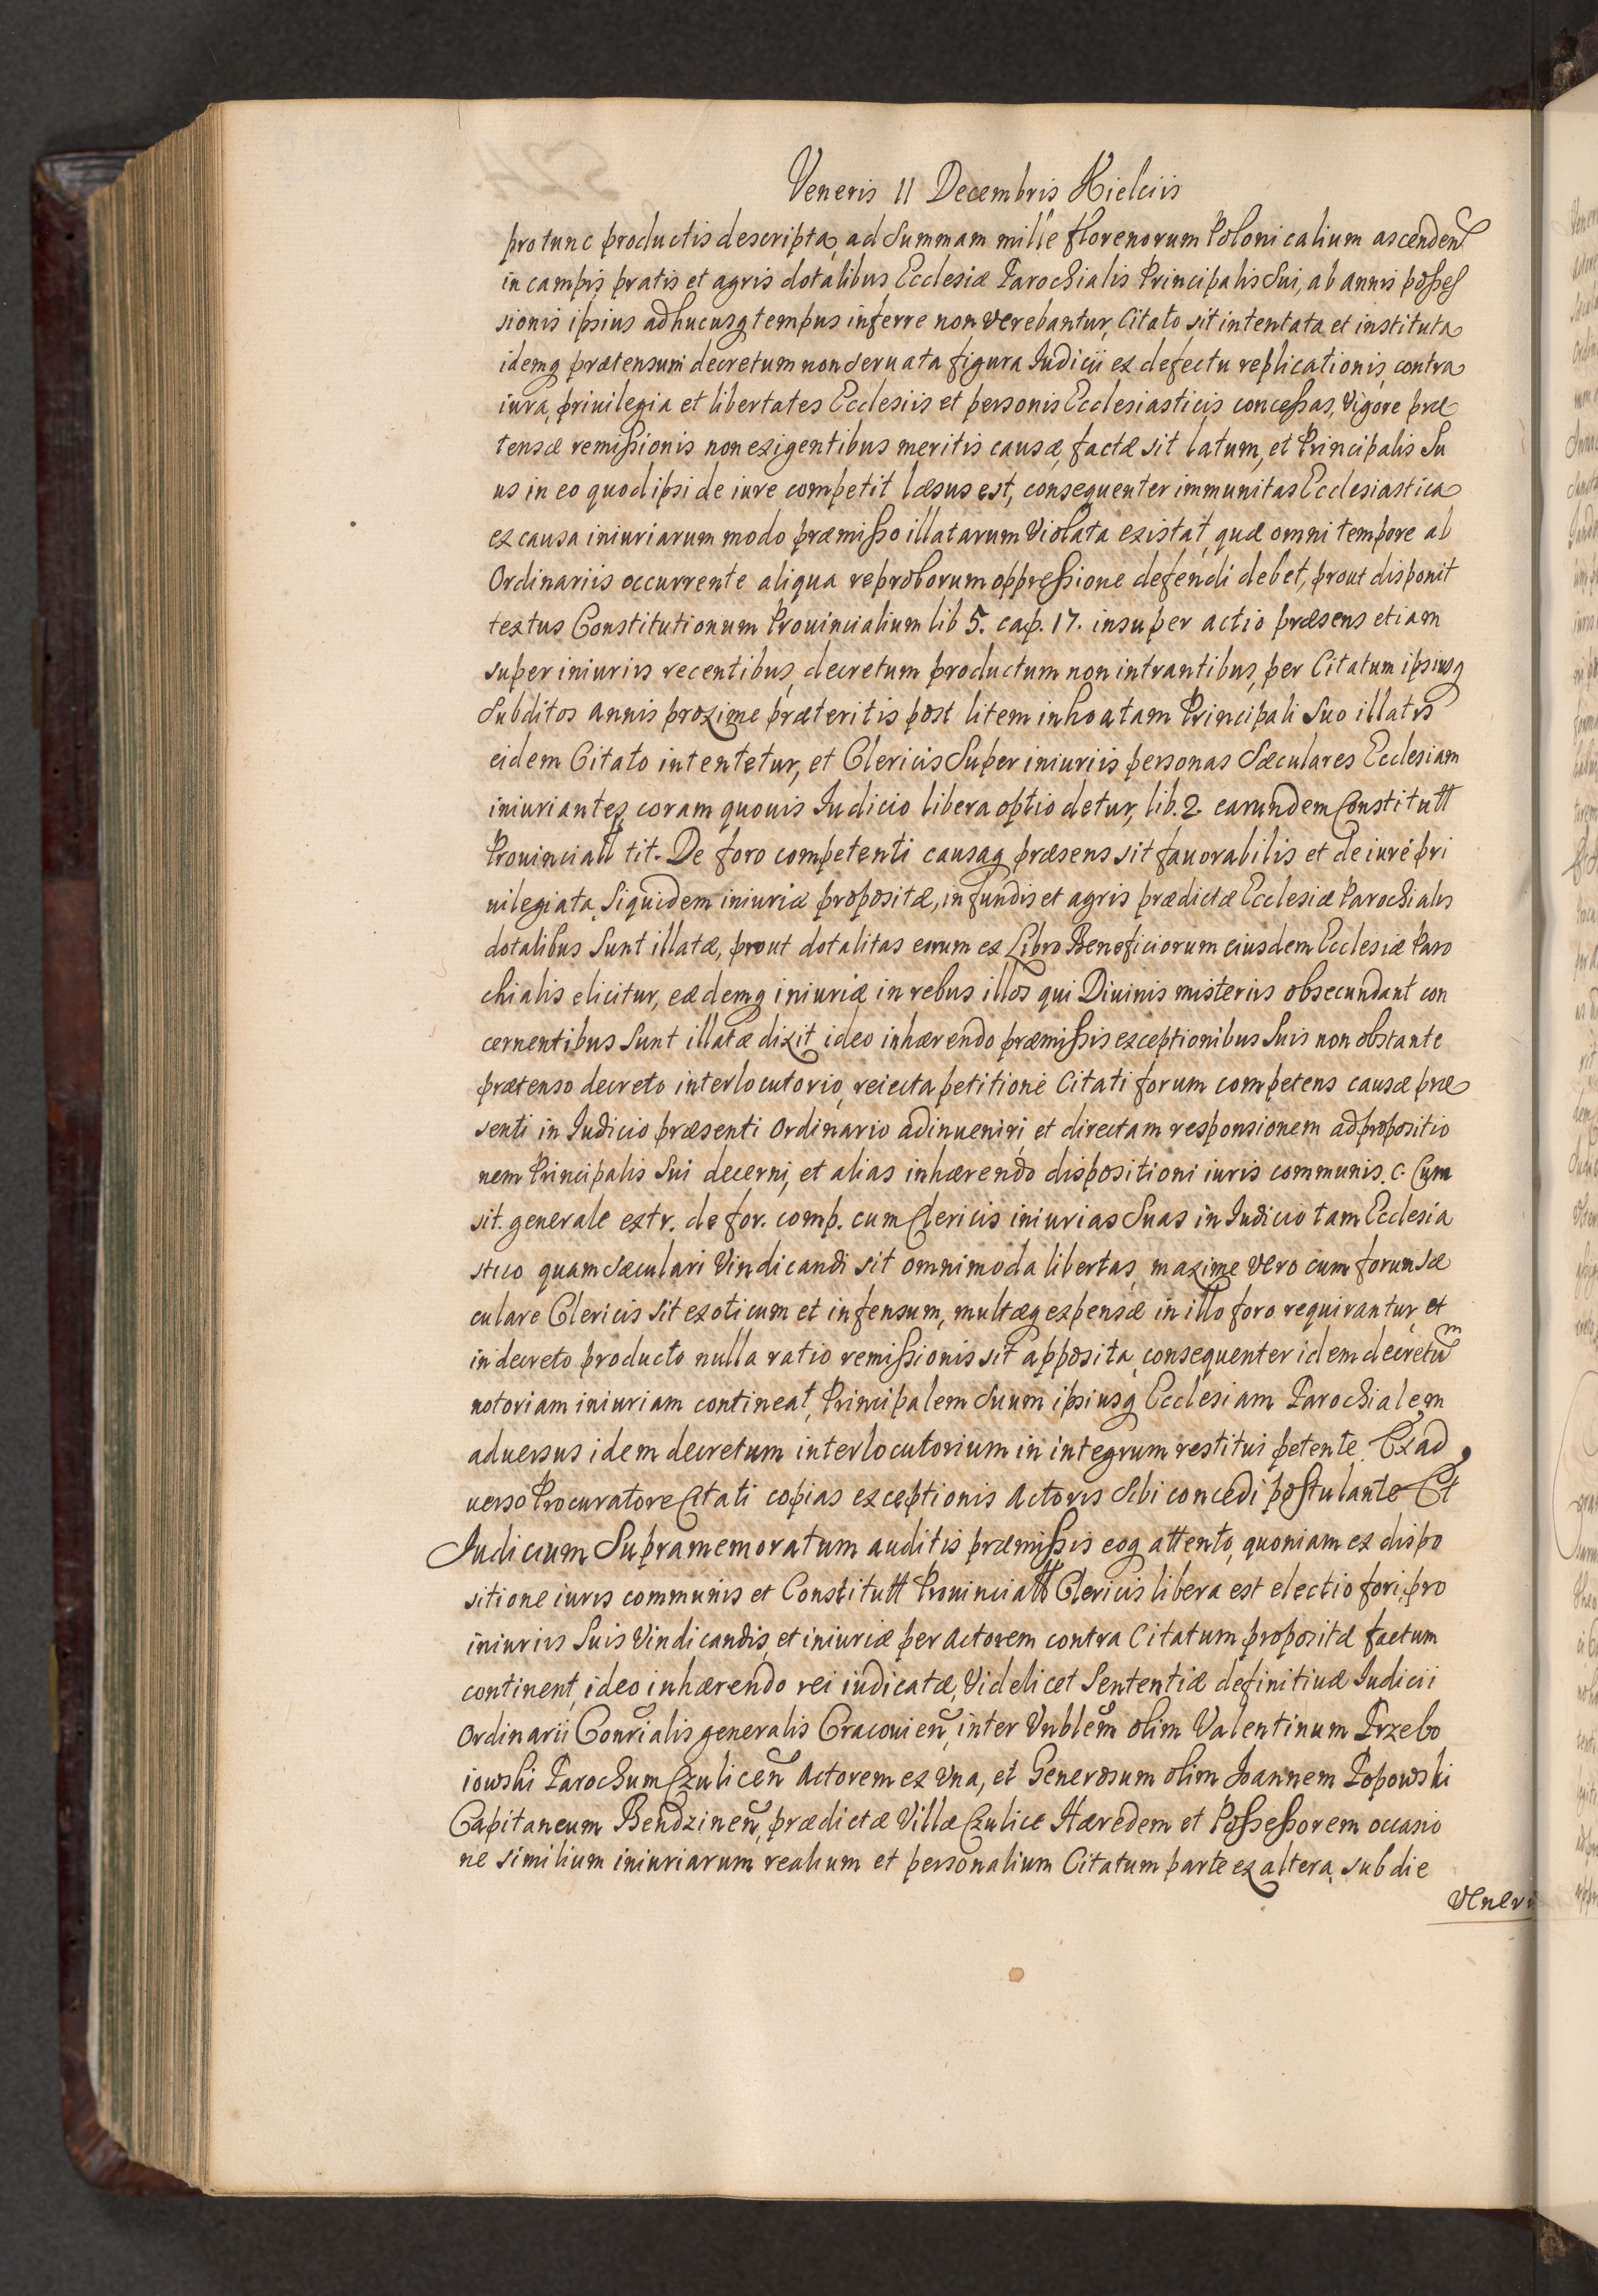 Veneris 11 Decembris Kielciis
pro tunc productis descripta, ad Summam mille florenorum Polonicalium ascenden
in campis pratis et agris dotalibus Ecclesiæ Parochialis Principalis Sui, ab annis posses
sionis ipsius adhucusq tempus inferre non verebantur, Citato sit intentata et instituta
idemq prætensum decretum non servata figura Iudicii ex defectu replicationis, contra
iura, priuilegia et libertates Ecclesiis et personis Ecclesiasticis concessas, Vigore præ
tensæ remissionis non exigentibus meritis causæ, factæ sit latum, et Principalis Su
us in eo quod ipsi de iure competit læsus est, consequenter immunitas Ecclesiastica
ex causa iniuriarum modo præmisso illatarum Violata existat, quæ omni tempore ab
Ordinariis occurrente aliqua reproborum oppressione defendi debet, prout disponit
textus Constitutionum Prouincialium lib 5. cap. 17. insuper actio præsens etiam
super iniuriis recentibus, decretum productum non intrantibus, per Citatum ipsiusq
Subditos annis proxime præteritis post litem inhoatam Principali Suo illatis
eidem Citato intentetur, et Clericis Super iniuriis personas Sæculares Ecclesiam
iniuriantes, coram quouis Iudicio libera optio detur, lib. 2. earundem Constitutt
Prouinciall tit. De foro competenti causaq præsens sit fauorabilis et de iure pri
uilegiata, Siquidem iniuriæ propositæ, in fundis et agris prædictæ Ecclesiæ Parochialis
dotalibus Sunt illatæ, prout dotalitas eorum ex Libro Beneficiorum eiusdem Ecclesiæ Paro
chialis elicitur, eædemq iniuriæ in rebus illos qui Diuinis misteriis obsecundant con
cernentibus Sunt illatæ dixit ideo inhærendo præmissis exceptionibus Suis non obstante
prætenso decreto interlocutorio, reiecta petitione Citati forum competens causæ præ
senti in Iudicio præsenti Ordinario adinueniri, et directam responsionem ad propositio
nem Principalis Sui decerni, et alias inhærendo dispositioni iuris communis. c. Cum
sit. generale extr. de for. comp. cum Clericis iniurias Suas in Iudicio tam Ecclesia
stico quam Sæculari Vindicandi sit omnimoda libertas, maxime vero cum forum sæ
culare Clericis Sit exoticum et infensum, multæq expensæ in illo foro requirantur, et
in decreto producto nulla ratio remissionis sit apposita, consequenter idem decretum
notoriam iniuriam contineat, Principalem Suum ipsiusq Ecclesiam Parochialem
aduersus idem decretum interlocutorium in integrum restitui petente. Ex ad
uerso Procuratore Citati copias exceptionis Actoris Sibi concedi postulante Et
Iudicium Supramemoratum auditis præmissis eoq attento, quoniam ex dispo
sitione iuris communis et Constitutt Prouinciall Clericis libera est electio fori, pro
iniuriis Suis Vindicandis, et iniuriæ per Actorem contra Citatum propositæ factum
continent, ideo inhærendo rei iudicatæ, Videlicet Sententiæ definitiuæ Iudicii
Ordinarii Conrialis generalis Cracouien, inter Vnblem olim Valentinum Przebo
iowski Parochum Czulicen Actorem ex Vna, et Generosum olim Ioannem Popowski
Capitaneum Bendzinen, prædictæ Villæ Czulice Hæredem et Possessorem occasio
ne similium iniuriarum realium et personalium Citatum parte ex altera, sub die
Veneri